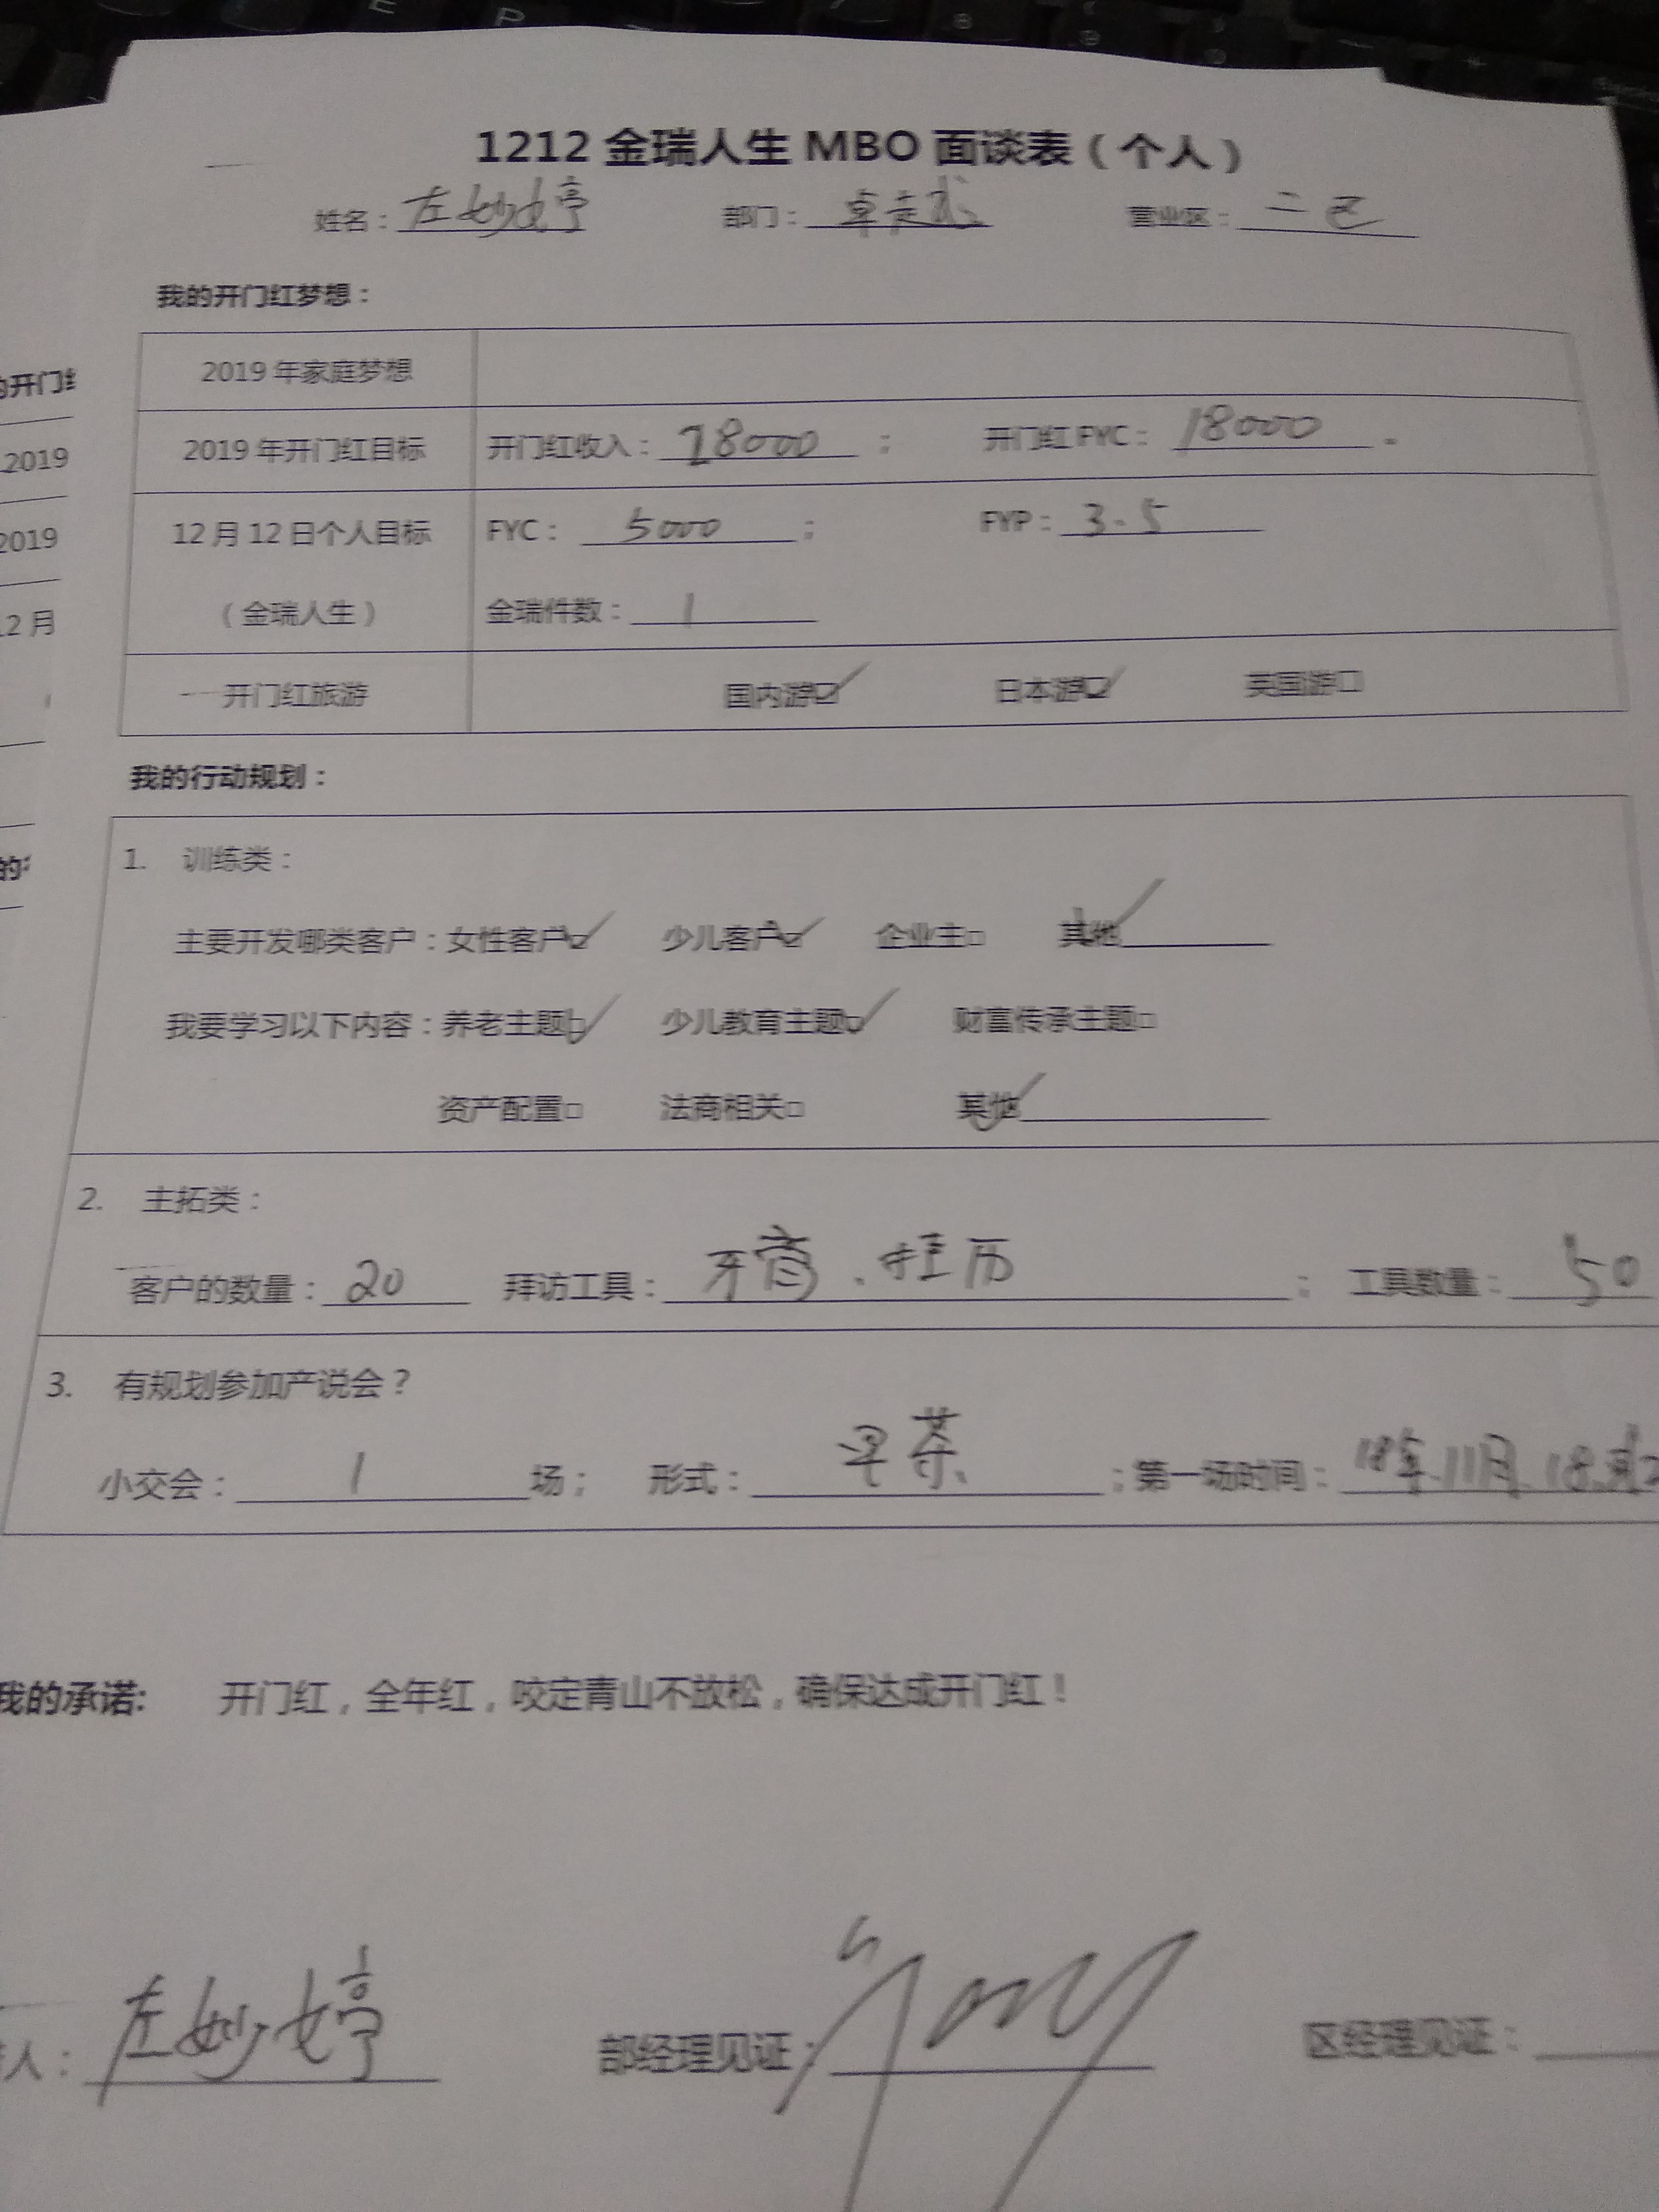 1212 金瑞人生 MBO 面谈表（个人）
姓名：左妙婷 部门：卓越 营业区：二区
我的开门红梦想：
2019 年家庭梦想
2019 年开门红目标 开门红收入：28000； 开门红 FYC：18000。
12 月 12 日个人目标 FYC：5000； FYP：3.5
（金瑞人生） 金瑞件数：1
开门红旅游 国内游☑ 日本游☑ 英国游□
我的行动规划：
1. 训练类：
主要开发哪类客户：女性客户☑ 少儿客户☑ 企业主□ 其他✓
我要学习以下内容：养老主题☑ 少儿教育主题☑ 财富传承主题□
资产配置□ 法商相关□ 其他✓
2. 主拓类：
客户的数量：20 拜访工具：牙膏、挂历； 工具数量：50
3. 有规划参加产说会？
小交会：1场； 形式：早茶；第一场时间：18年11月18
我的承诺: 开门红，全年红，咬定青山不放松，确保达成开门红！
人：左妙婷 部经理见证： 区经理见证：
的开门
2019
2019
2月
的